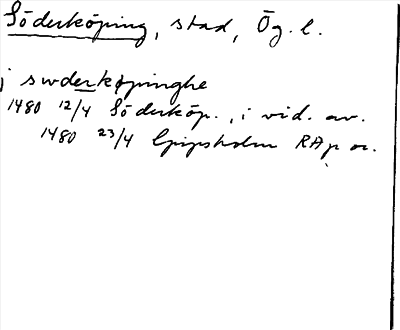 Söderköping, stad, Ög. l.
j swderkøpinghe
1480 12/4 Söderköp., i vid. av.
1480 23/4 Gripsholm RAp or.